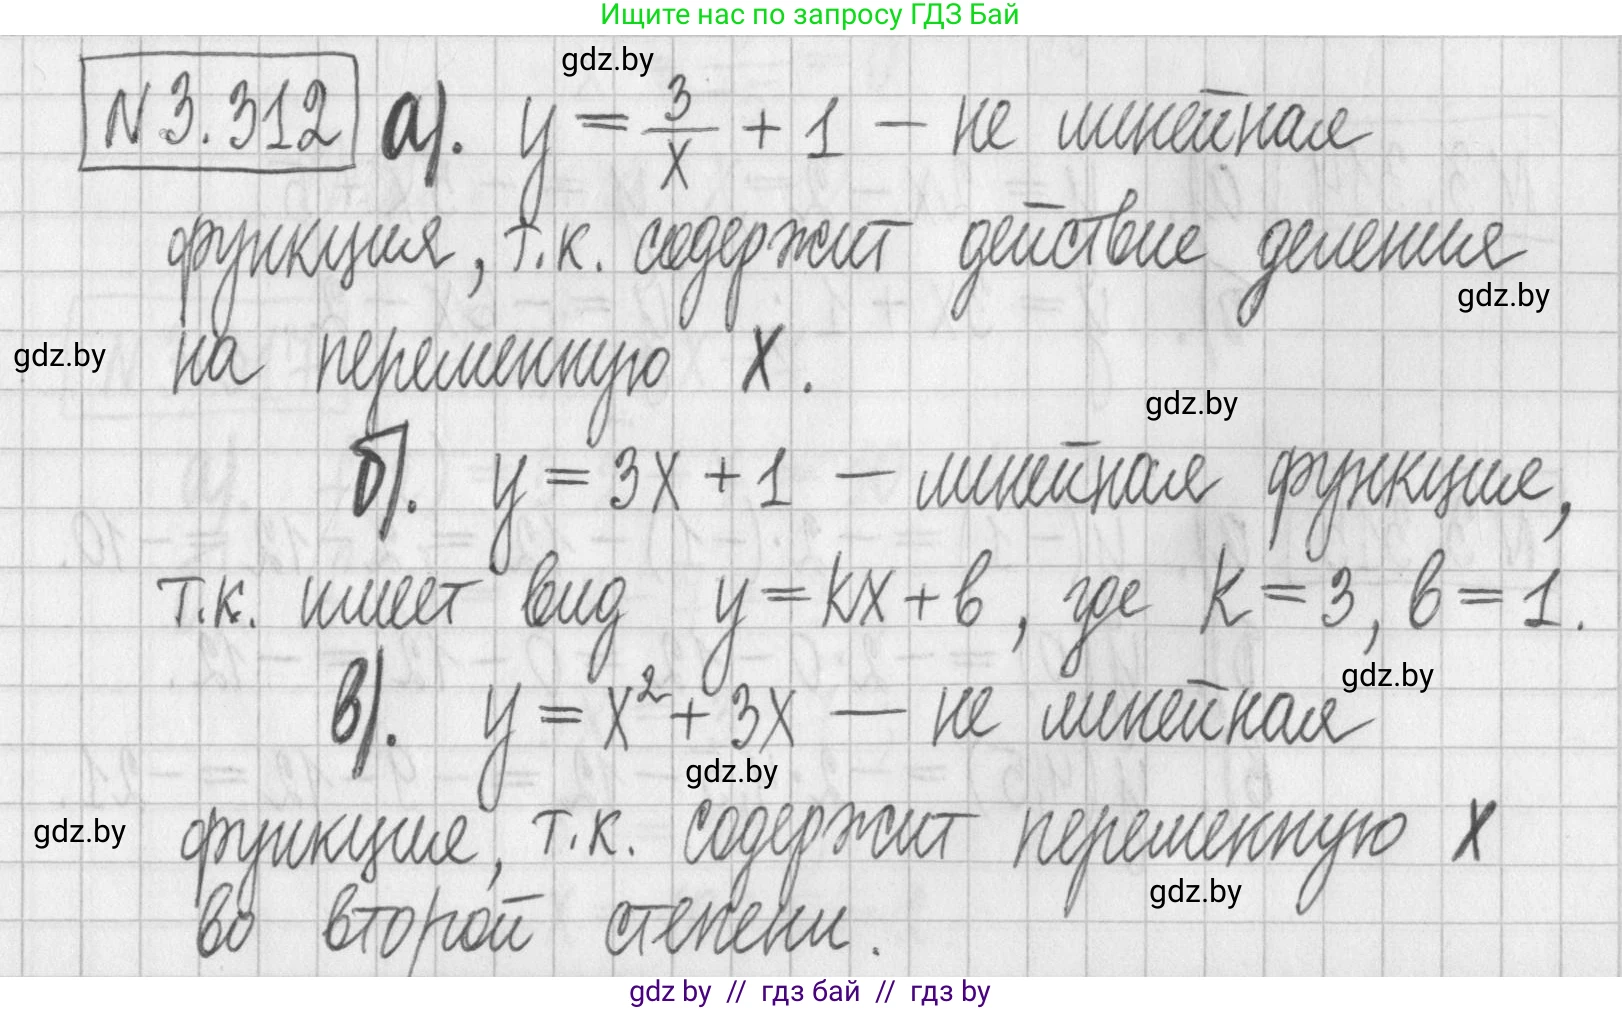 Ищите нас по запросу ГДЗ Бай
gdz.by
N 3.312 а). y = 3/x + 1 — не линейная
функция, т.к. содержит действие деления
gdz.by
на переменную x.
gdz.by
gdz.by
б). y = 3x + 1 — линейная функция,
т.к. имеет вид y = kx + b, где k = 3, b = 1.
gdz.by
в). y = x² + 3x — не линейная
gdz.by
функция, т.к. содержит переменную x
gdz.by
gdz.by
во второй степени.
gdz by // гдз бай // гдз by